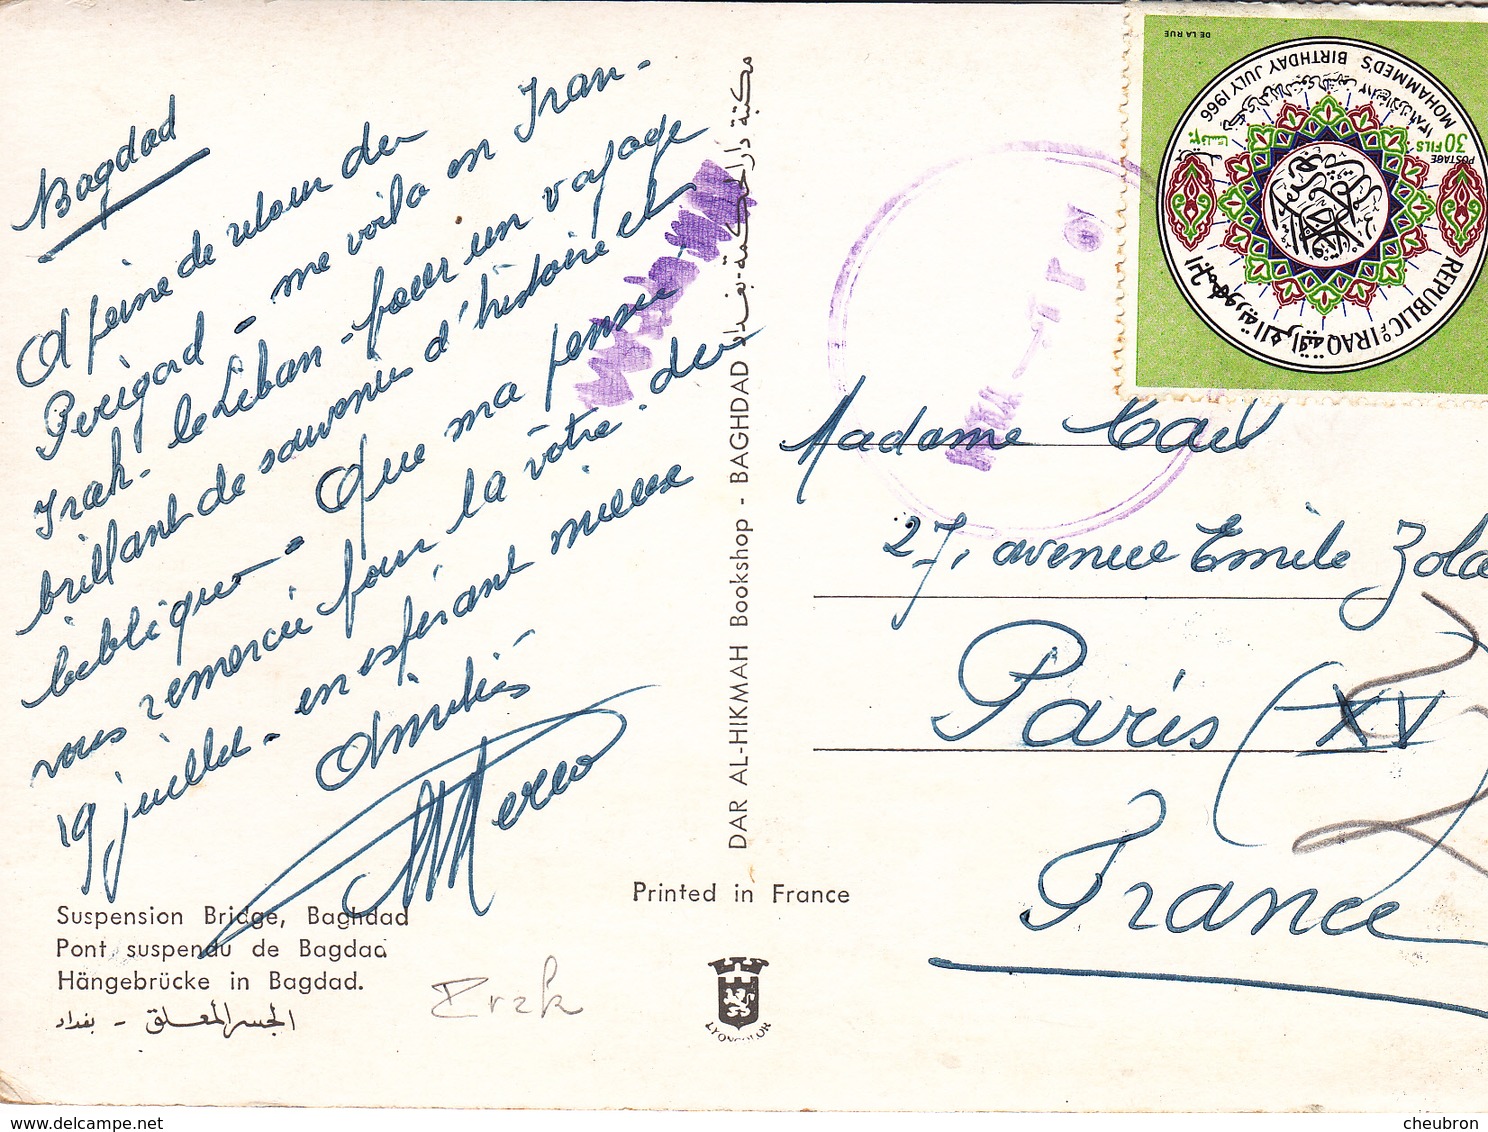 Bagdad
A peine de retour du
Périgord - me voila en Iran -
Irak - le Liban - pour un voyage
brillant de souvenirs d'histoire et
biblique - Que ma pensée
vous remercie pour la vôtre du
19 juillet - en espérant mieux
Amitiés
Madame
27, avenue Emile Zola
Paris (XV)
France
DAR AL-HIKMAH Bookshop - BAGHDAD مكتبة دار الحكمة - بغداد
Printed in France
Suspension Bridge, Baghdad
Pont suspendu de Bagdad
Hängebrücke in Bagdad.
الجسر المعلق - بغداد
LYONCOLOR
DE LA RUE
MOHAMMED'S BIRTHDAY JULY 1966
POSTAGE
30 FILS
٣٠ فلسا
REPUBLIC OF IRAQ
الجمهورية العراقية
www.delcampe.net
cheubron